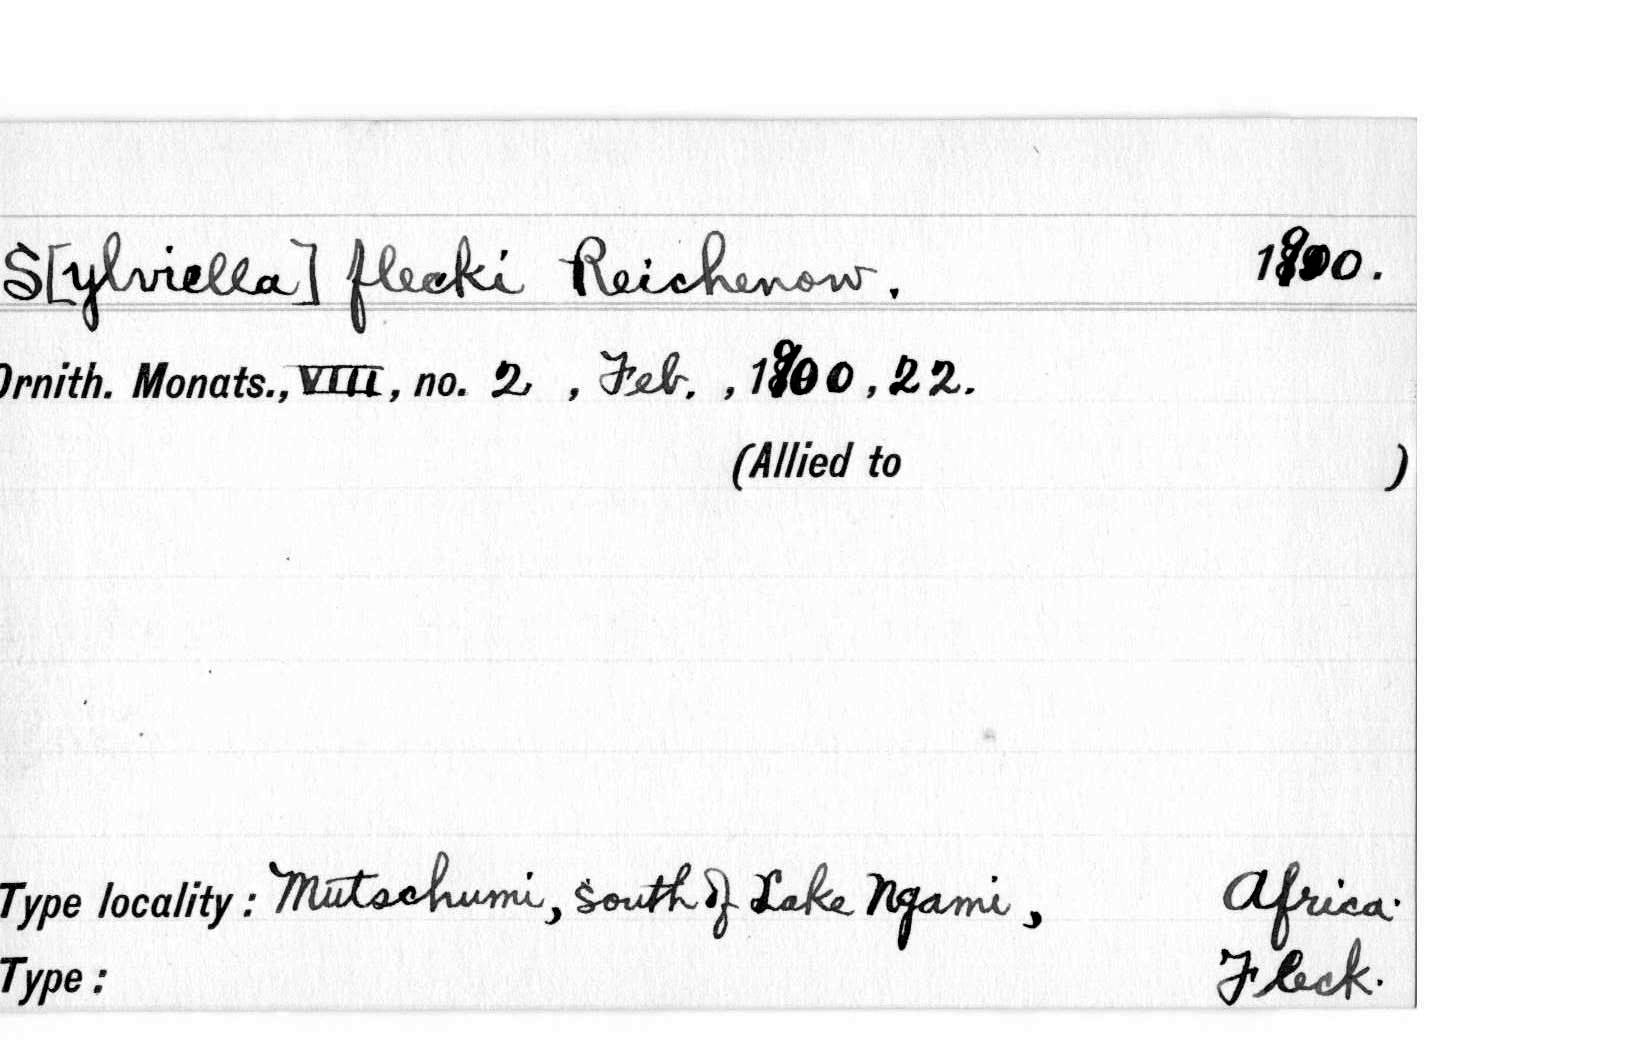 S[ylviella] flecki Reichenow. 1900.
Ornith. Monats., VIII, no. 2, Feb., 1900, 22.
(Allied to )
Type locality: Mutschumi, south of Lake Ngami, Africa.
Type: Fleck.